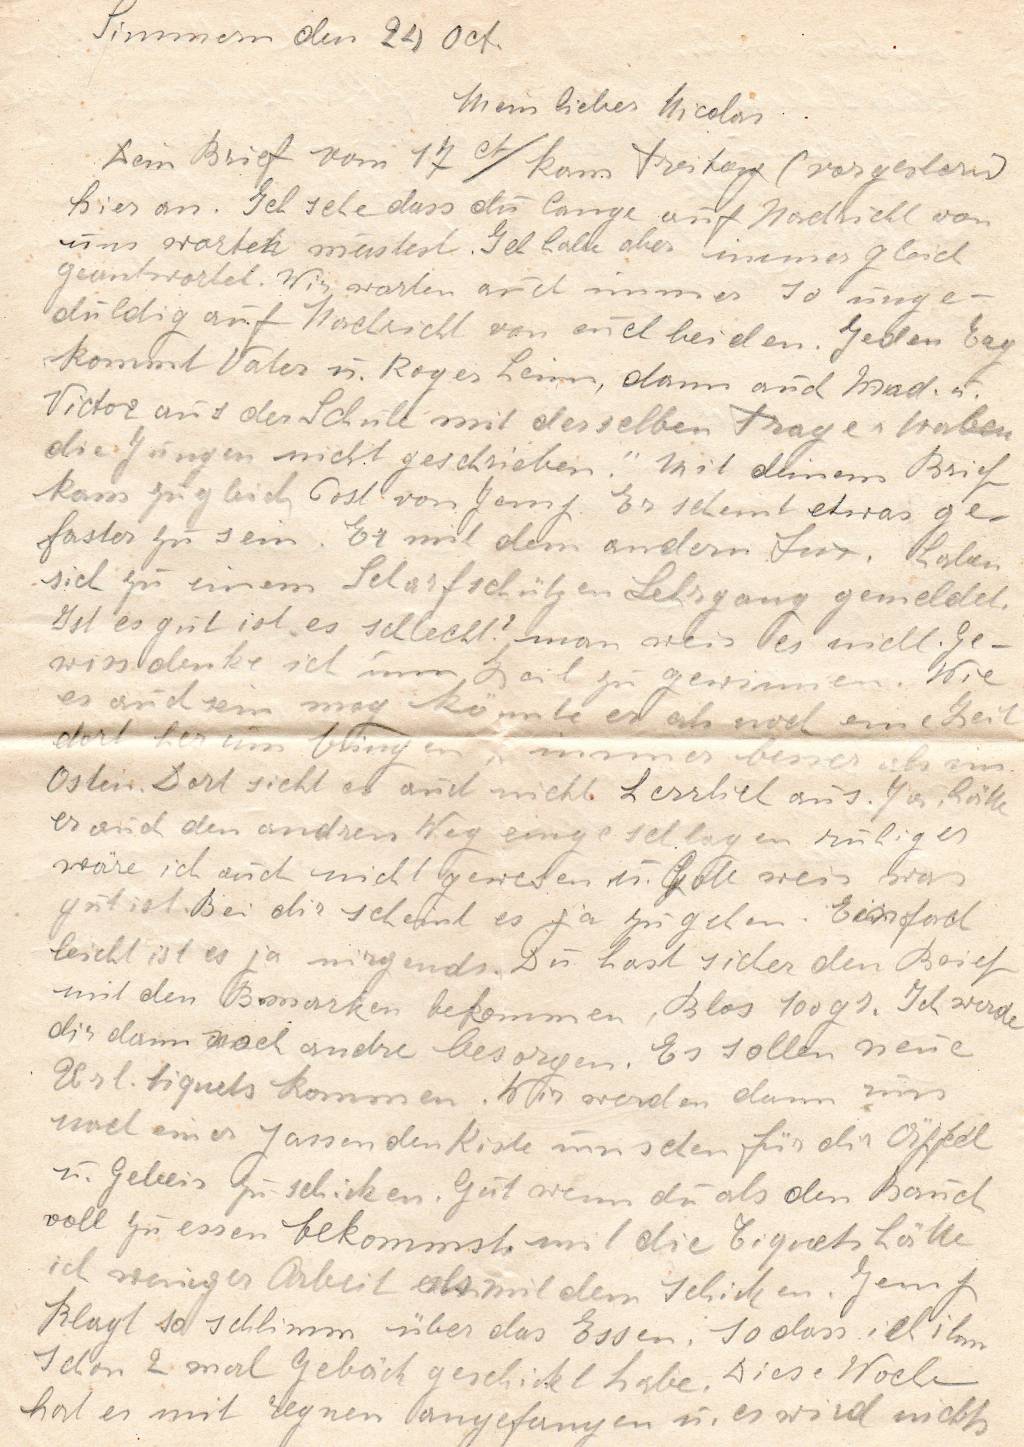 Simmern den 24 Oct.
Mein lieber Nicolas
Dein Brief vom 17 ct/ kam Freitag (vorgestern)
hier an. Ich sehe dass du lange auf Nachricht von
uns warten musstest. Ich habe aber immer gleich
geantwortet. Wir warten auch immer so unge-
duldig auf Nachricht von euch beiden. Jeden Tag
kommt Vater u. Roger heim, dann auch Mad. u.
Victor aus der Schule mit derselben Frage „ Haben
die Jungen nicht geschrieben." Mit deinem Brief
kam zugleich Post von Jemy. Er scheint etwas ge-
faster zu sein. Er mit dem andern haben
sich zu einem Scharfschützen Lehrgang gemeldet.
Ist es gut ist es schlecht? man weis es nicht. Ge-
wiss denke ich um Zeit zu gewinnen. Wie
es auch sein mag könnte er als noch eine Zeit
dort herum bringen, immer besser als im
Osten. Dort sieht es auch nicht herrlich aus. Ja, hätte
er auch den andren Weg eingeschlagen ruhiger
wäre ich auch nicht gewesen u. Gott weis was
gut ist. Bei dir scheint es ja zu gehen. Einfach
leicht ist es ja nirgends. Du hast sicher den Brief
mit den Bmarken bekommen, Blos 100 gr. Ich werde
dir dann noch andre besorgen. Es sollen neue
Url. tiquets kommen. Wir werden dann uns
nach einer passenden Kiste umsehen für dir Äpfel
u. Gebeis zu schicken. Gut wenn du als den Bauch
voll zu essen bekommst. mit die Tiquets hätte
ich weniger Arbeit als mit dem schicken. Jemy
klagt so schlimm über das Essen. sodass ich ihm
schon 2 mal Gebäck geschickt habe. Diese Woche
hat es mit regnen angefangen u. es wird nichts